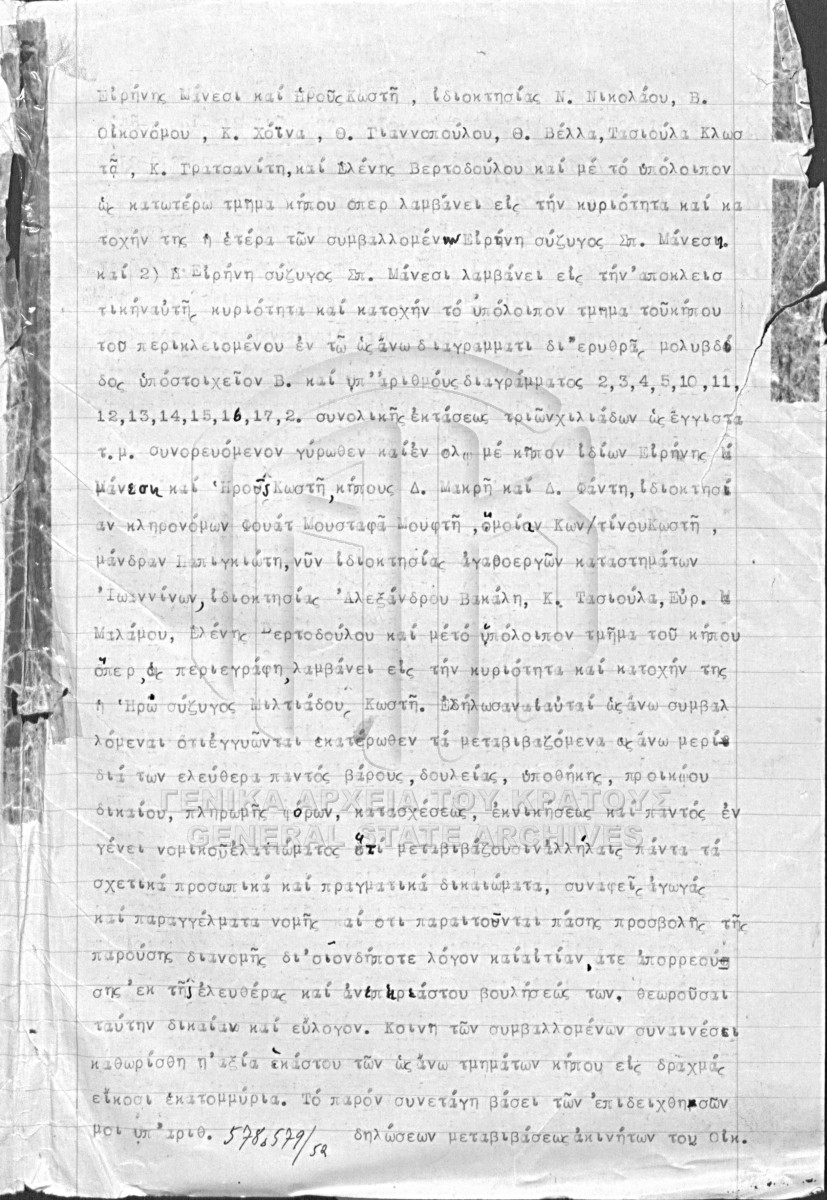 Εἰρήνης Μάνεσι καί Ἡροῦς Κωστῆ , ἰδιοκτησίας Ν. Νικολάου, Β.
Οἰκονόμου , Κ. Χόϊνα , Θ. Γιαννοπούλου, Θ. Βέλλα, Τασιούλα Κλωσ
τᾷ , Κ. Γρατσανίτη, καί Ἑλένης Βερτοδούλου καί μέ τό ὑπόλοιπον
ὡς κατωτέρω τμῆμα κήπου ὅπερ λαμβάνει εἰς τήν κυριότητα καί κα
τοχήν της ἡ ἑτέρα τῶν συμβαλλομένων Εἰρήνη σύζυγος Σπ. Μάνεση.
καί 2) Ἡ Εἰρήνη σύζυγος Σπ. Μάνεσι λαμβάνει εἰς τήν ἀποκλεισ
τικήν αὐτῆς κυριότητα καί κατοχήν τό ὑπόλοιπον τμῆμα τοῦ κήπου
τοῦ περικλειομένου ἐν τῷ ὡς ἄνω διαγράμματι δι' ἐρυθρᾶς μολυβδί
δος ὑπό στοιχεῖον Β. καί ὑπ' ἀριθμούς διαγράμματος 2,3,4,5,10,11,
12,13,14,15,16,17,2. συνολικῆς ἐκτάσεως τριῶν χιλιάδων ὡς ἔγγιστα
τ.μ. συνορευόμενον γύρωθεν καί ἐν ὅλῳ μέ κῆπον ἰδίων Εἰρήνης
Μάνεση καί Ἡροῦς Κωστῆ, κήπους Δ. Μακρῆ καί Δ. Φάντη, ἰδιοκτησί
αν κληρονόμων Φουάτ Μουσταφᾶ Μουφτῆ , ὁμοίαν Κων/τίνου Κωστῆ ,
μάνδραν Παπιγκιώτη, νῦν ἰδιοκτησίας ἀγαθοεργῶν καταστημάτων
Ἰωαννίνων, ἰδιοκτησίας Ἀλεξάνδρου Βακάλη, Κ. Τασιούλα, Εὐρ.
Μαλάμου, Ἑλένης Βερτοδούλου καί μέ τό ὑπόλοιπον τμῆμα τοῦ κήπου
ὅπερ, ὡς περιεγράφη, λαμβάνει εἰς τήν κυριότητα καί κατοχήν της
ἡ Ἡρώ σύζυγος Μιλτιάδους Κωστῆ. Ἐδήλωσαν αἱ αὐταί ὡς ἄνω συμβαλ
λόμεναι ὅτι ἐγγυῶνται ἑκατέρωθεν τά μεταβιβαζόμενα ὡς ἄνω μερί
διά των ἐλεύθερα παντός βάρους, δουλείας, ὑποθήκης, προικῴου
δικαίου, πληρωμῆς φόρων, κατασχέσεως, ἐκνικήσεως καί παντός ἐν
γένει νομικοῦ ἐλαττώματος ὅτι μεταβιβάζουσιν ἀλλήλαις πάντα τά
σχετικά προσωπικά καί πραγματικά δικαιώματα, συναφεῖς ἀγωγάς
καί παραγγέλματα νομῆς αἱ ὅτι παραιτοῦνται πάσης προσβολῆς τῆς
παρούσης διανομῆς δι' οἱονδήποτε λόγον καί αἰτίαν, ἅτε ἀπορρεού
σης ἐκ τῆς ἐλευθέρας καί ἀνεπηρεάστου βουλήσεώς των, θεωροῦσαι
ταύτην δικαίαν καί εὔλογον. Κοινῇ τῶν συμβαλλομένων συναινέσει
καθωρίσθη ἡ ἀξία ἑκάστου τῶν ὡς ἄνω τμημάτων κήπου εἰς δραχμάς
εἴκοσι ἑκατομμύρια. Τό παρόν συνετάγη βάσει τῶν ἐπιδειχθησῶν
μοι ὑπ' ἀριθ. 578,579/52 δηλώσεων μεταβιβάσεως ἀκινήτων τοῦ Οἰκ.
ΓΕΝΙΚΑ ΑΡΧΕΙΑ ΤΟΥ ΚΡΑΤΟΥΣ
GENERAL STATE ARCHIVES